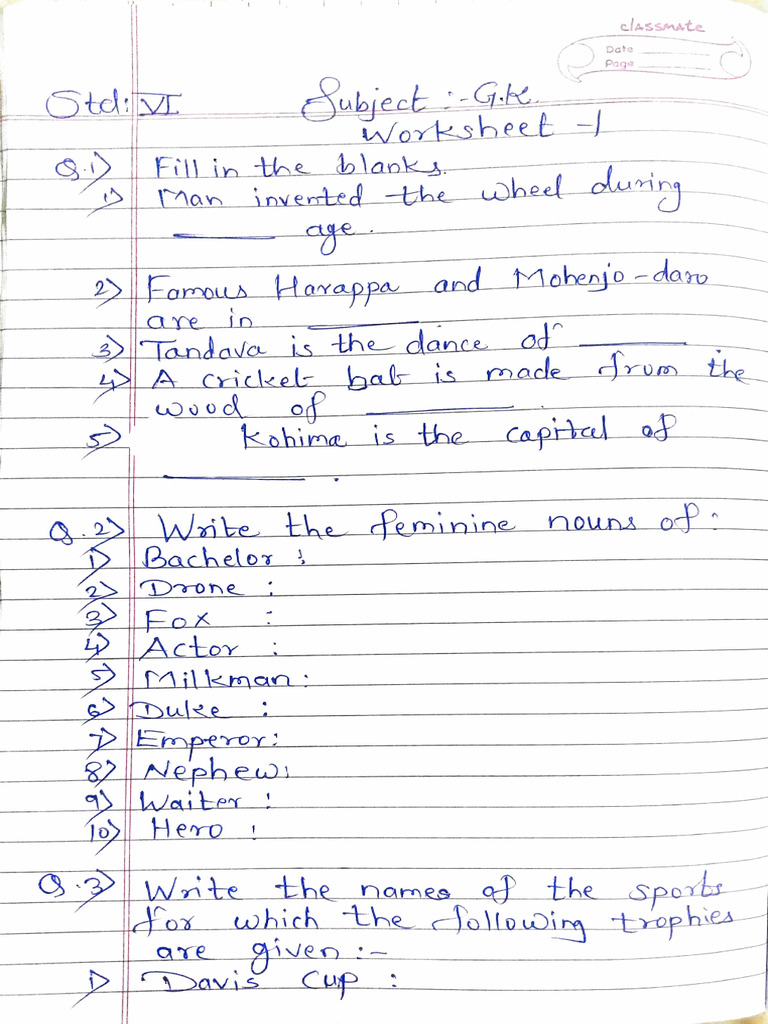 classmate
Date
Page
Std: VI Subject :- G.K.
Worksheet -1
Q.1) Fill in the blanks.
1) Man invented the wheel during
_________ age.
2) Famous Harappa and Mohenjo-daro
are in _________
3) Tandava is the dance of _________
4) A cricket bat is made from the
wood of _________.
5) Kohima is the capital of
_________.
Q.2) Write the feminine nouns of:
1) Bachelor :
2) Drone :
3) Fox :
4) Actor :
5) Milkman :
6) Duke :
7) Emperor :
8) Nephew :
9) Waiter :
10) Hero :
Q.3) Write the names of the sports
for which the following trophies
are given :-
1) Davis Cup :